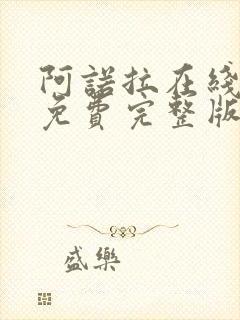 阿諾拉在綫
免費完整版
盛樂